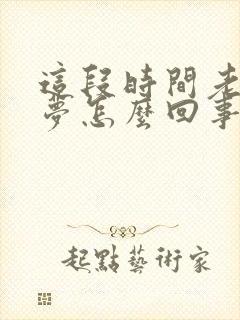 這段時間老
夢怎麼回事
起點藝術家